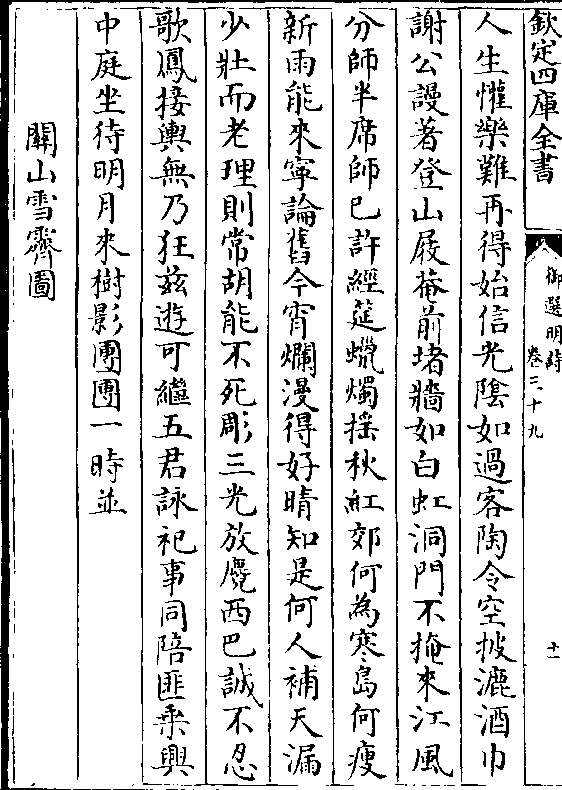 欽定四庫全書
御選明詩
卷三十九
十一
人生懽樂難再得始信光陰如過客陶令空披漉酒巾
謝公謾著登山屐菴前堵牆如白虹洞門不掩來江風
分師半席師已許經筵蠟燭揺秋紅郊何為寒島何瘦
新雨能來寧論舊今宵爛漫得好晴知是何人補天漏
少壯而老理則常胡能不死彫三光放麑西巴誠不忍
歌鳳接輿無乃狂兹遊可繼五君詠祀事同陪匪乘興
中庭坐待明月來樹影團團一時並
關山雪霽圖